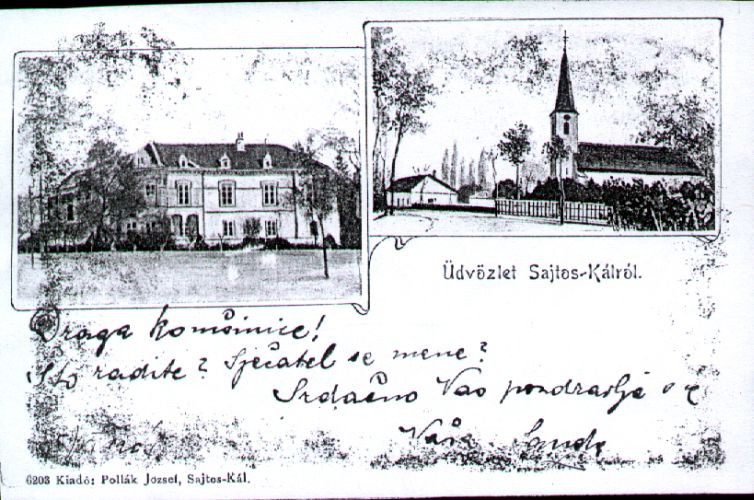 Üdvözlet Sajtos-Kálról.
Draga komšinice!
Što radite? Sječatel se mene?
Srdačno Vas pozdravlja
Vaša
6203 Kiadó: Pollák József, Sajtos-Kál.